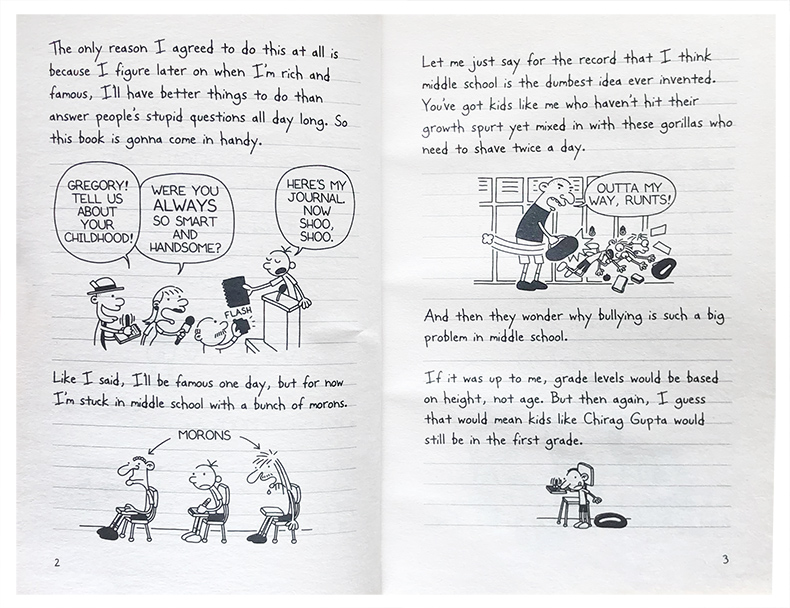 The only reason I agreed to do this at all is
because I figure later on when I'm rich and
famous, I'll have better things to do than
answer people's stupid questions all day long. So
this book is gonna come in handy.
GREGORY!
TELL US
ABOUT
YOUR
CHILDHOOD!
WERE YOU
ALWAYS
SO SMART
AND
HANDSOME?
HERE'S MY
JOURNAL.
NOW
SHOO,
SHOO.
FLASH
Like I said, I'll be famous one day, but for now
I'm stuck in middle school with a bunch of morons.
MORONS
2
Let me just say for the record that I think
middle school is the dumbest idea ever invented.
You've got kids like me who haven't hit their
growth spurt yet mixed in with these gorillas who
need to shave twice a day.
OUTTA MY
WAY, RUNTS!
And then they wonder why bullying is such a big
problem in middle school.
If it was up to me, grade levels would be based
on height, not age. But then again, I guess
that would mean kids like Chirag Gupta would
still be in the first grade.
3